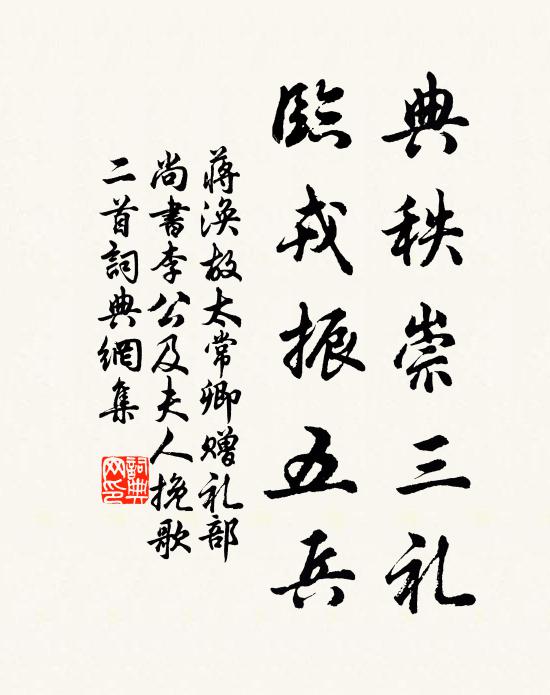 典秩崇三礼
臨戎振五兵
蒋涣故太常卿赠礼部
尚書李公及夫人挽歌
二首詞典網集
詞典
网印